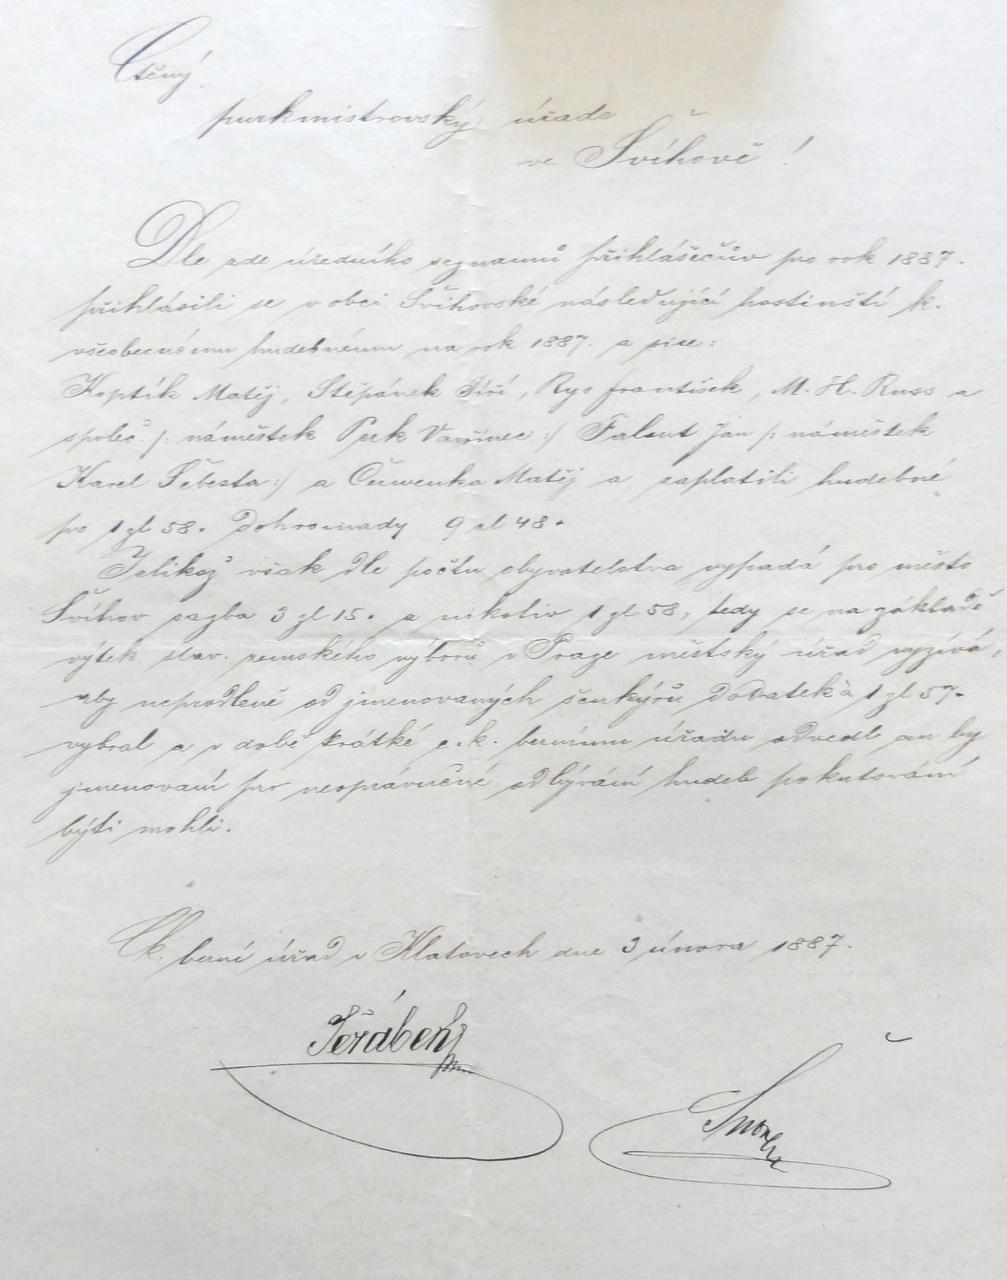 Ctěný
purkmistrovský úřade
ve Švíhově!
Dle zde úředního seznamu přihlášečův pro rok 1887.
přihlásili se v obci Švihovské následující hostinští k.
všeobecnému hudebnému na rok 1887. a sice:
Koptík Matěj, Štěpánek Jiří, Rys František, M. H. Russ a
společ. /: náměstek Perk Vavřinec :/ Falout Jan /: náměstek
Karel Šebesta :/ a Červenka Matěj a zaplatili hudebné
po 1 zl 58. Dohromady 9 zl 48.
Jelikož však dle počtu obyvatelstva vypadá pro město
Švíhov sazba 3 zl 15. a nikoliv 1 zl 58, tedy se na základě
výtek slav. zemského výborů v Praze městský úřad vyzívá,
aby neprodleně od jmenovaných šenkýřů Dodatek à 1 zl 57.
vybral a v době krátké c. k. bernímu úřadu odvedl an by
jmenovaní pro neoprávněné odbývání hudeb pokutování
býti mohli.
Ck. berní úřad v Klatovech dne 3 února 1887.
Jeřábek